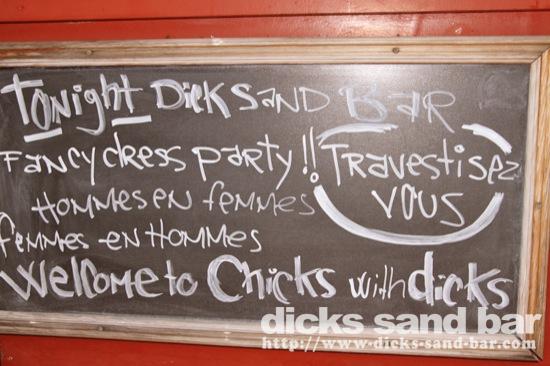 Tonight Dick Sand Bar
Fancy dress party!! Travestisez
Hommes en femmes vous
femmes en Hommes
Welcome to Chicks with dicks
dicks sand bar
http://www.dicks-sand-bar.com